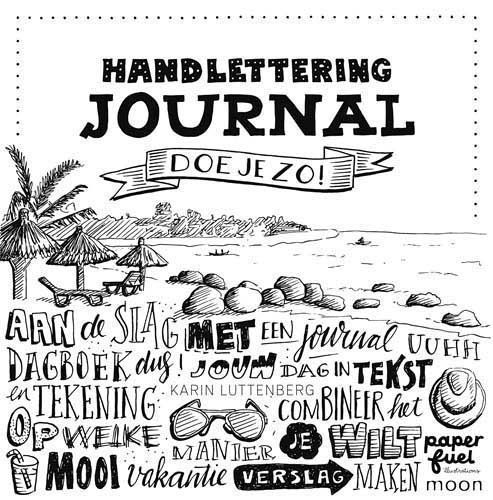 HANDLETTERING
JOURNAL
DOE JE ZO!
AAN de SLAG MET EEN journal UUHH
DAGBOEK dus! JOUW DAG IN TEKST
en TEKENING KARIN LUTTENBERG COMBINEER het
OP WELKE MANIER JE WILT paper fuel illustrations
MOOI vakantie VERSLAG MAKEN moon